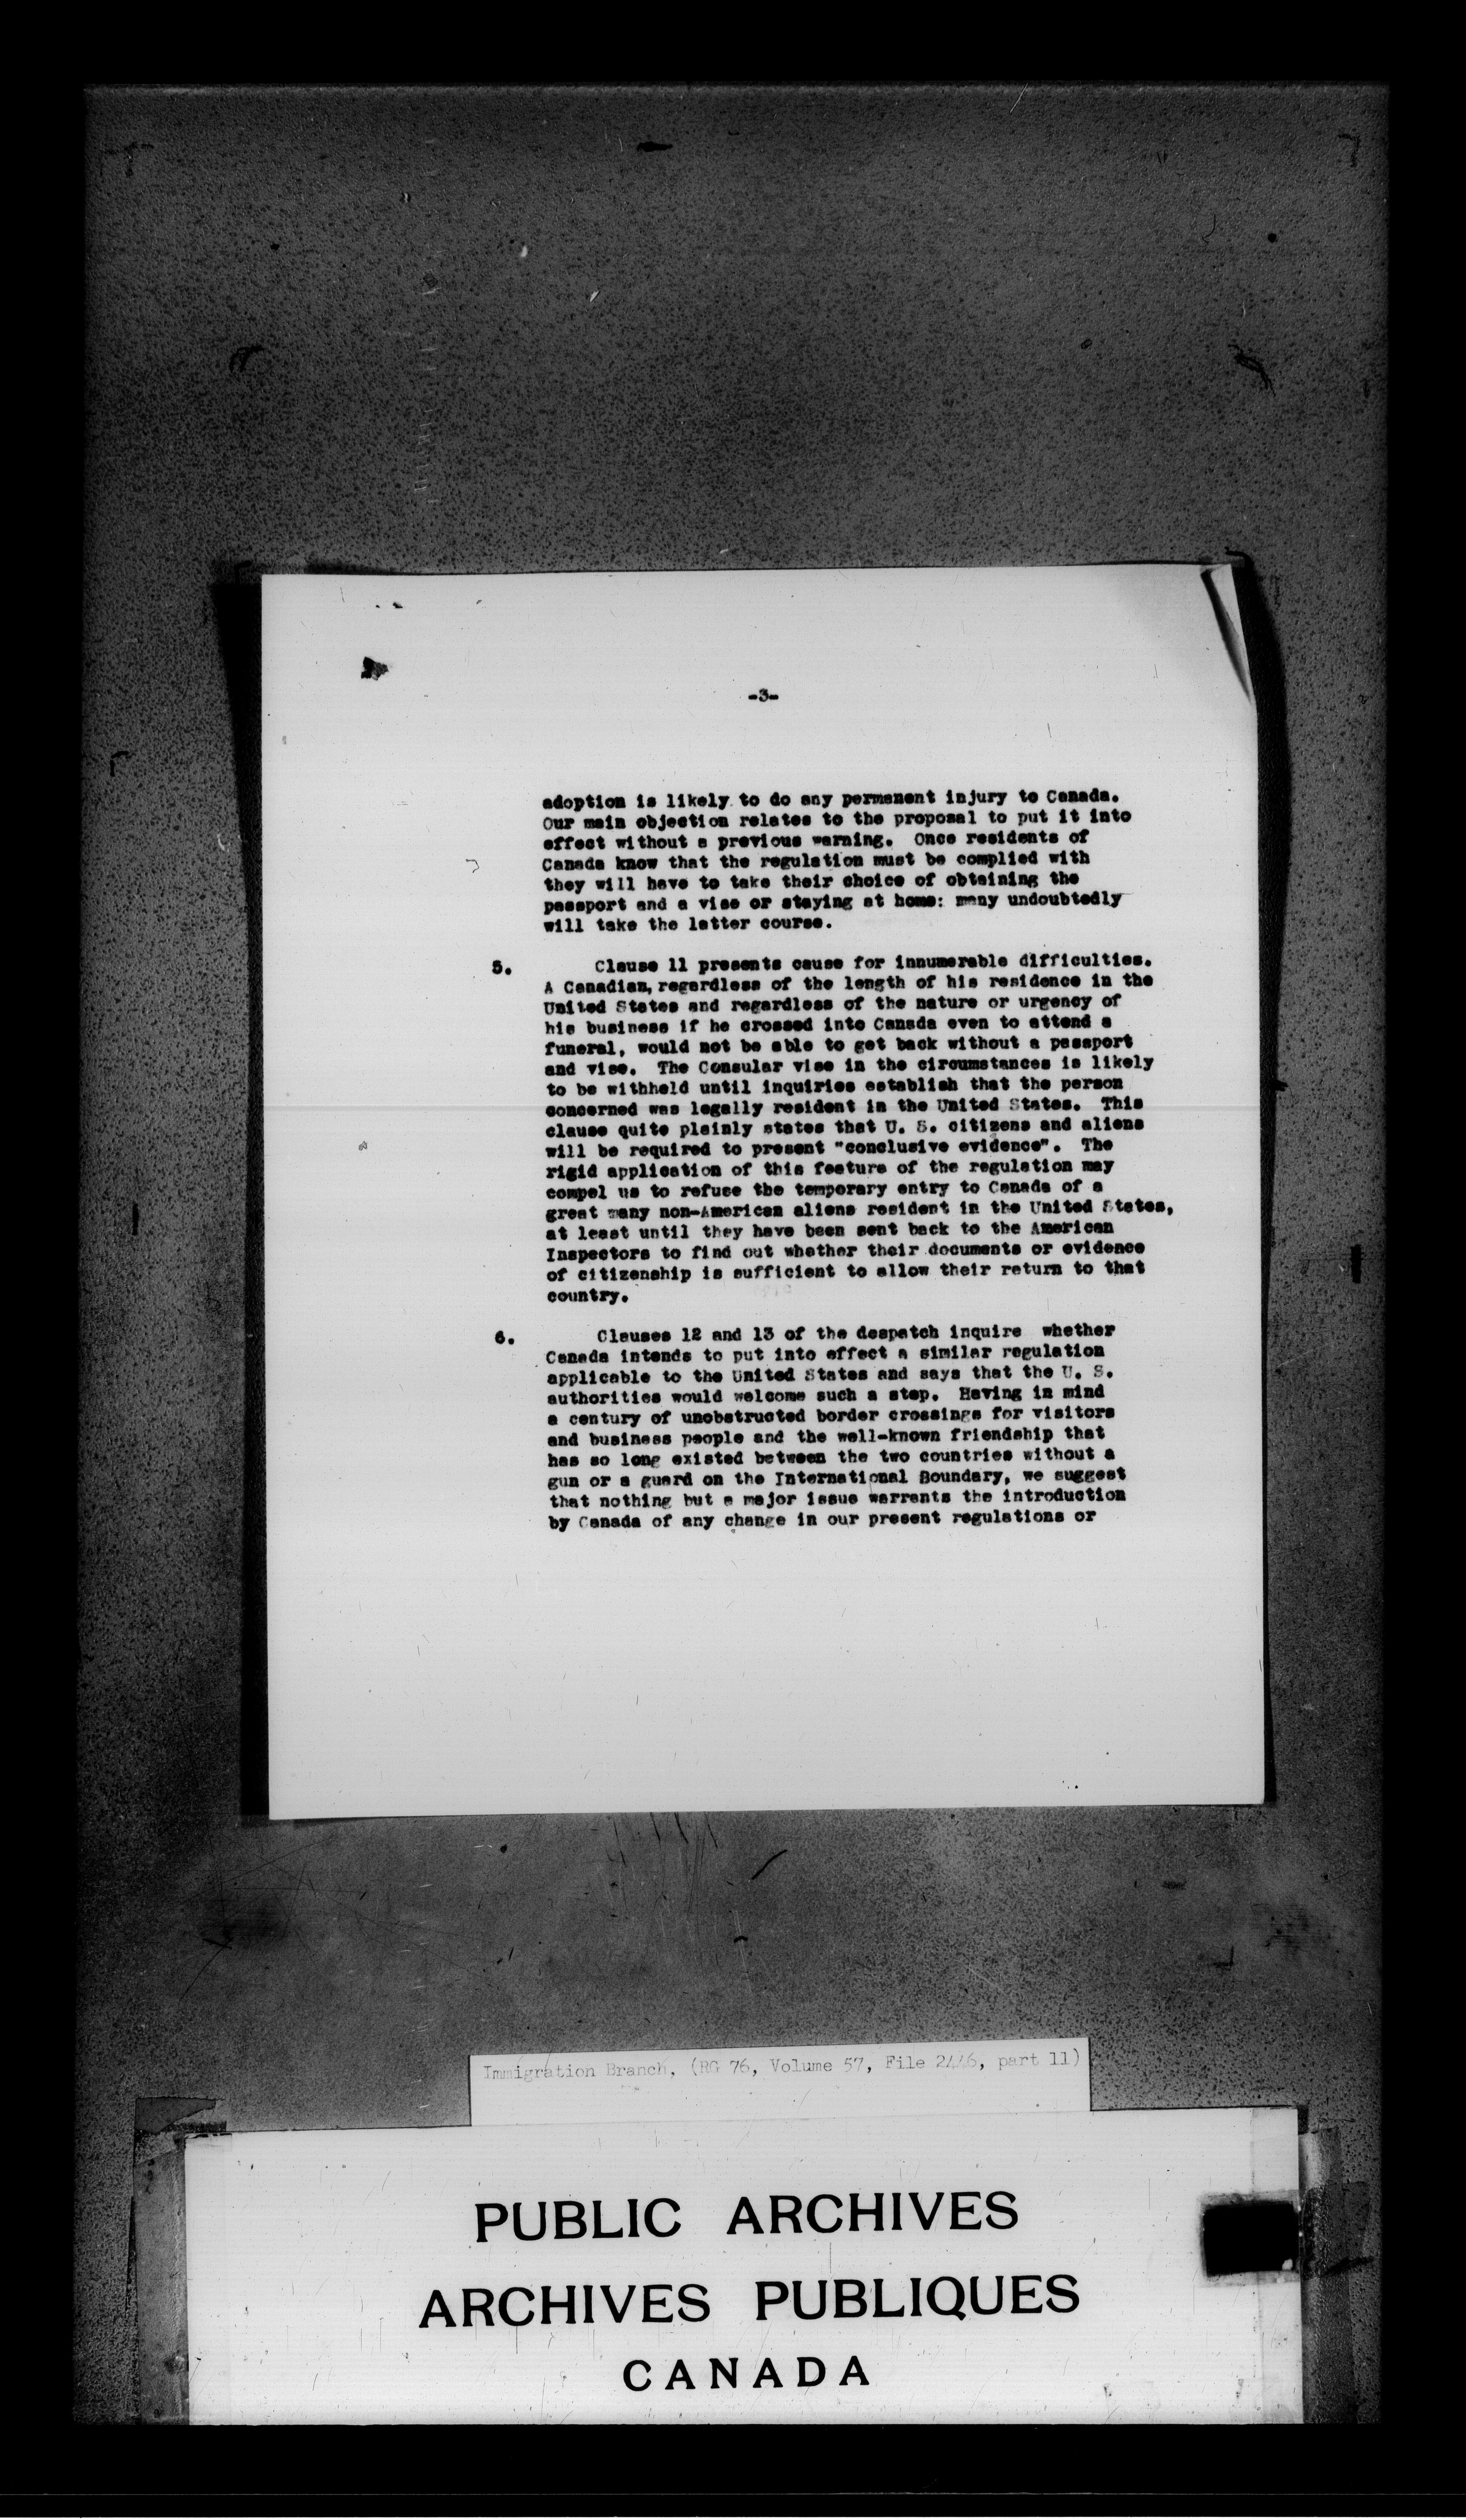 -3-
adoption is likely to do any permanent injury to Canada.
Our main objection relates to the proposal to put it into
effect without a previous warning. Once residents of
Canada know that the regulation must be complied with
they will have to take their choice of obtaining the
passport and a vise or staying at home: many undoubtedly
will take the latter course.
5. Clause 11 presents cause for innumerable difficulties.
A Canadian, regardless of the length of his residence in the
United States and regardless of the nature or urgency of
his business if he crossed into Canada even to attend a
funeral, would not be able to get back without a passport
and vise. The Consular vise in the circumstances is likely
to be withheld until inquiries establish that the person
concerned was legally resident in the United States. This
clause quite plainly states that U. S. citizens and aliens
will be required to present "conclusive evidence". The
rigid application of this feature of the regulation may
compel us to refuse the temporary entry to Canada of a
great many non-American aliens resident in the United States,
at least until they have been sent back to the American
Inspectors to find out whether their documents or evidence
of citizenship is sufficient to allow their return to that
country.
6. Clauses 12 and 13 of the despatch inquire whether
Canada intends to put into effect a similar regulation
applicable to the United States and says that the U. S.
authorities would welcome such a step. Having in mind
a century of unobstructed border crossings for visitors
and business people and the well-known friendship that
has so long existed between the two countries without a
gun or a guard on the International Boundary, we suggest
that nothing but a major issue warrants the introduction
by Canada of any change in our present regulations or
Immigration Branch, (RG 76, Volume 57, File 2446, part 11)
PUBLIC ARCHIVES
ARCHIVES PUBLIQUES
CANADA